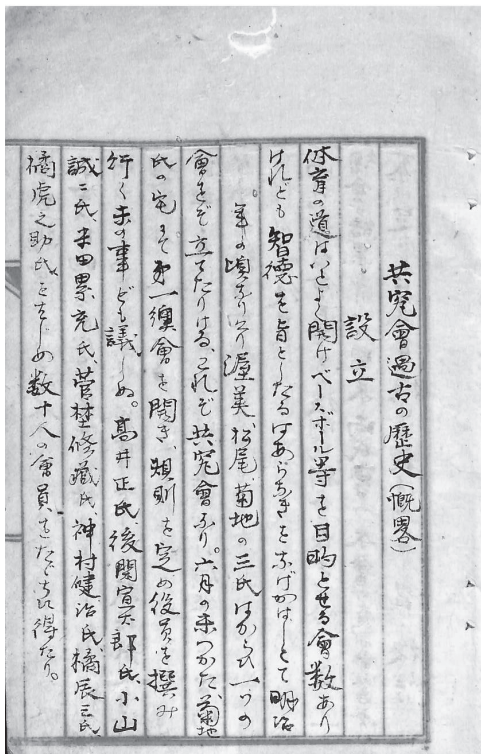 共究會過古の歷史(慨畧)
設立
体育の道はいとよく開けベースボール等を目的とせる會数あり
けれども智德を旨としたるはあらぬをなげかはしとて明治
年の頃なりけり渥美、松尾、菊地の三氏はからひ一つの
會をぞ立てたりける、これぞ共究會なり。六月の末つかた、菊地
氏の宅にて第一續會を開き、規則を定め役員を撰み
行く末の事ども議しぬ。高井正氏後閑宣太郎氏小山
誠二氏、米田累充氏、菅埜條藏氏、神村健治氏橘辰三氏
橘虎之助氏をはじめ数十人の會員をたゞちに得たり。